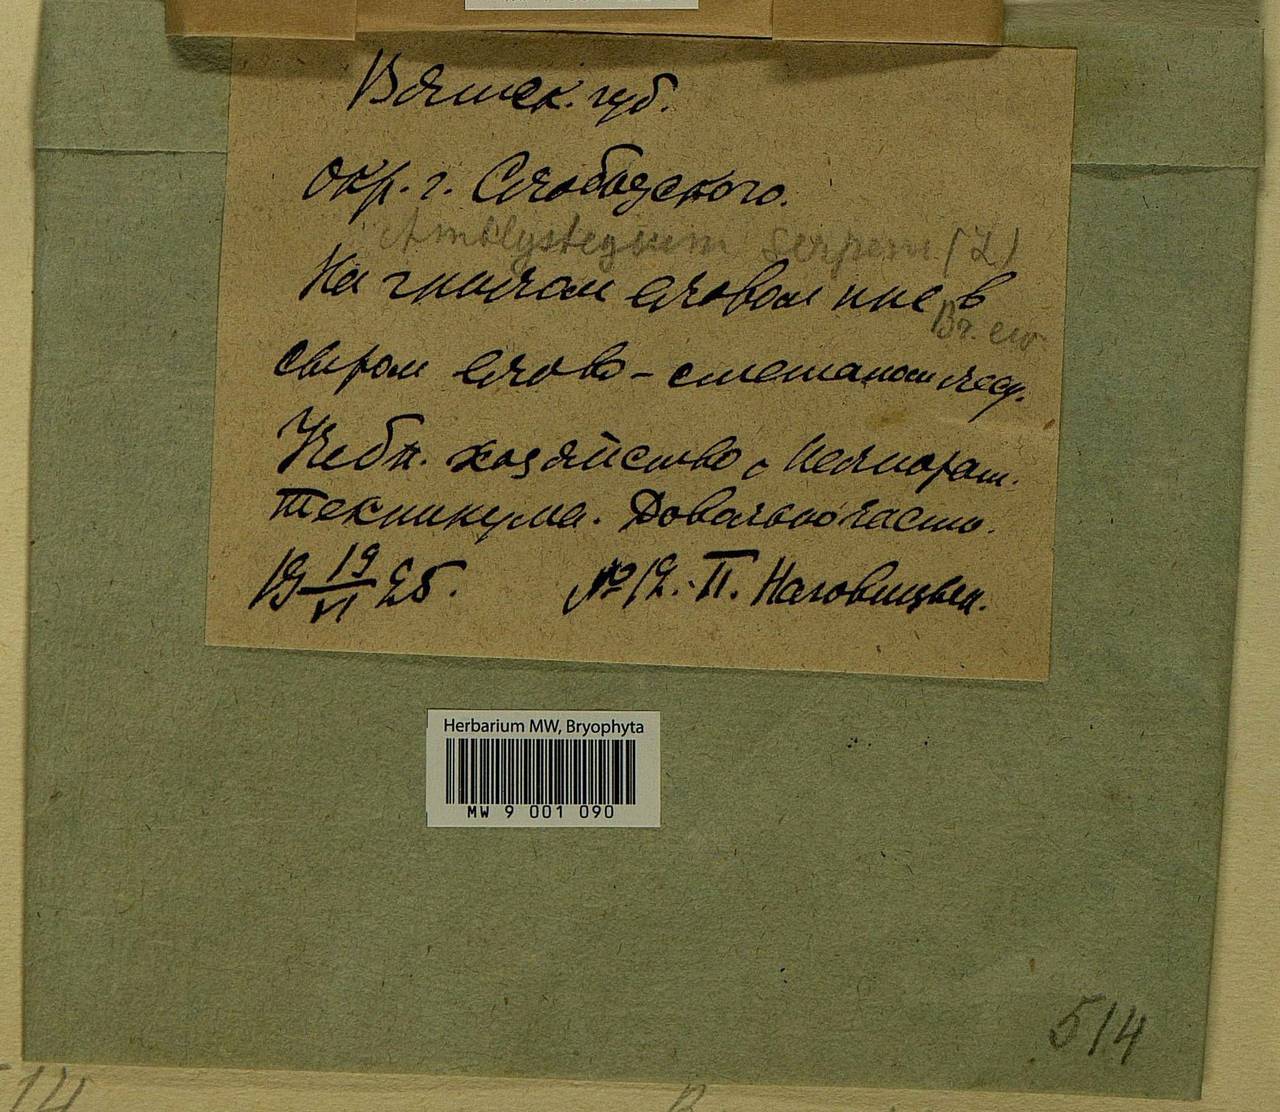 Вятск. губ.
окр. г. Слободского.
Amblystegium serpens (L)
На гнилом еловом пне в
Br. eur.
сыром елово-смешаном лесу.
Учебн. хозяйство
техникума. Довольно часто.
19 19/VI 25. № 12. П. Наговицын.
Herbarium MW, Bryophyta
MW 9 001 090
514